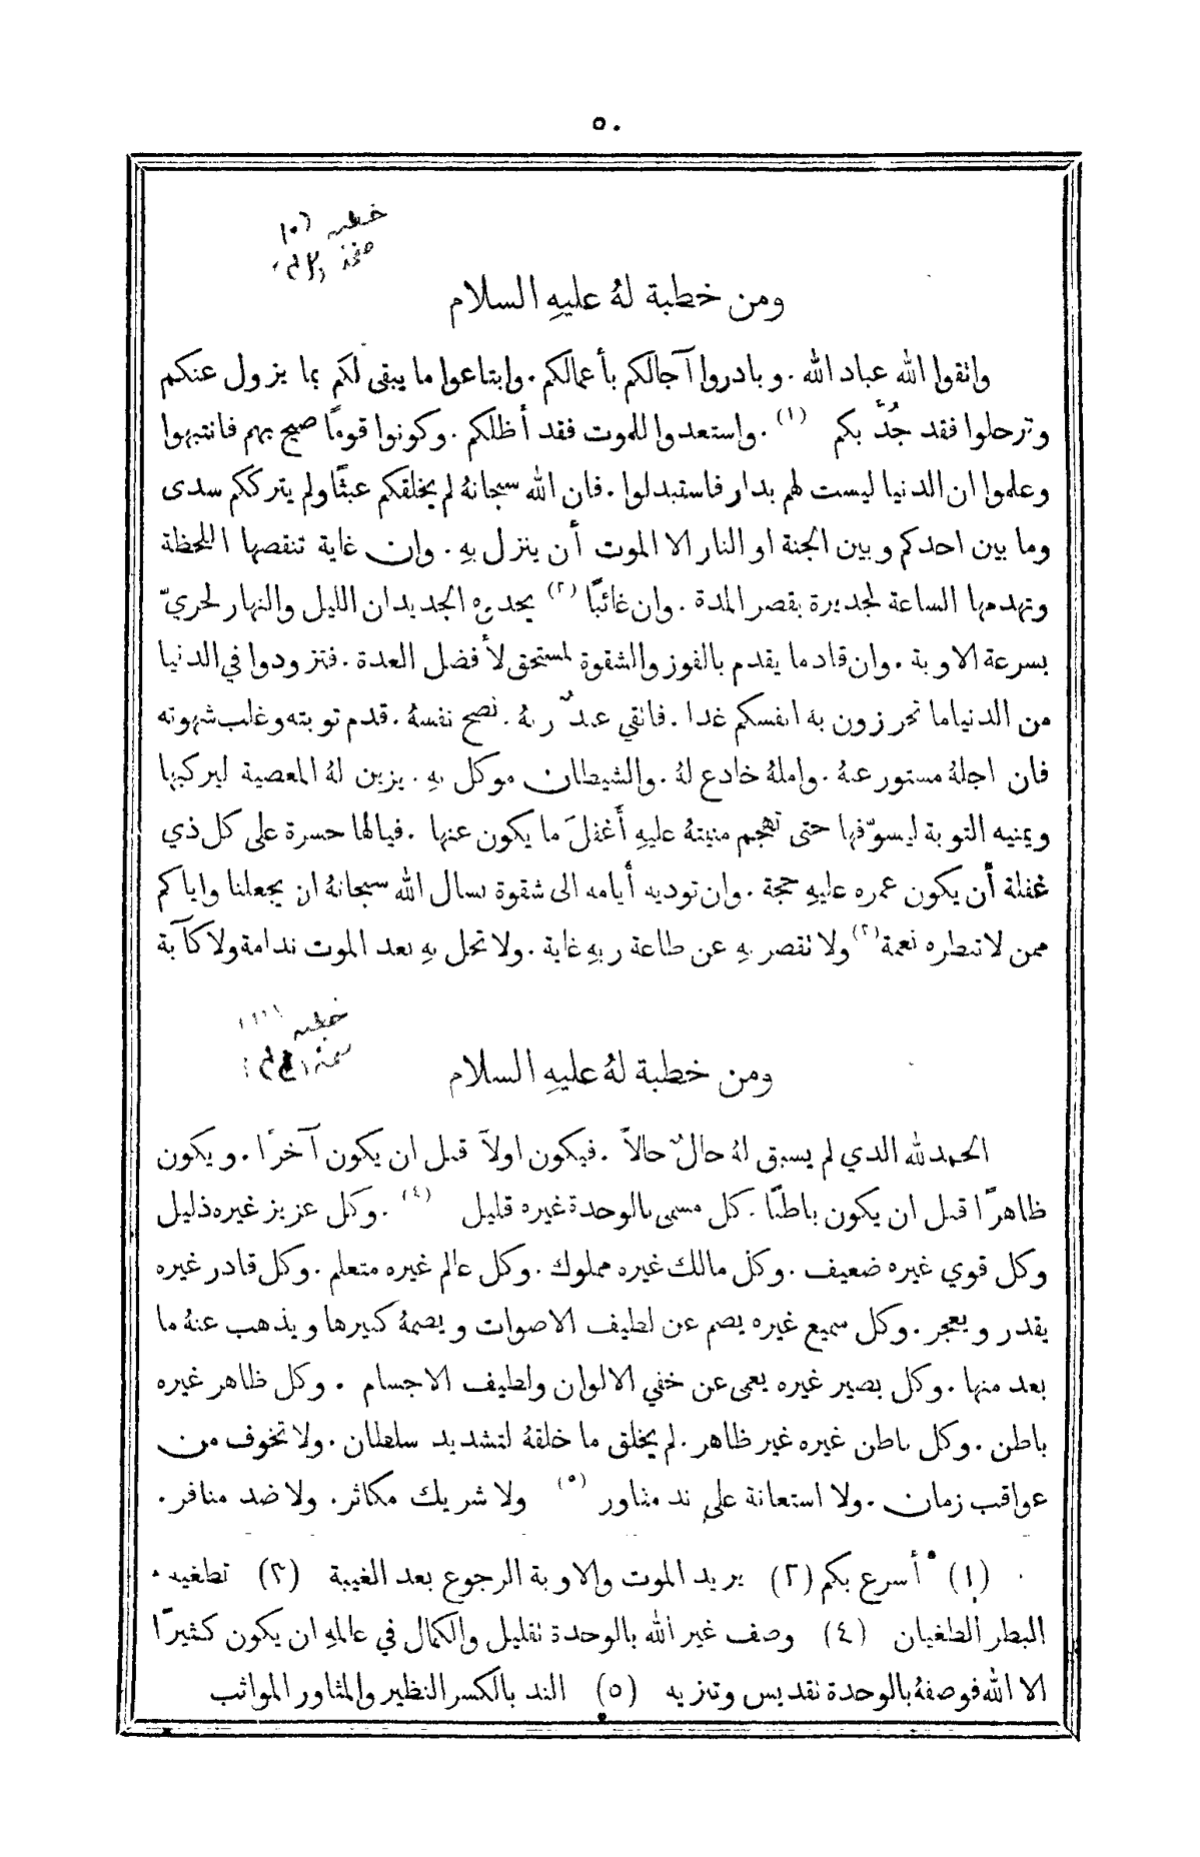 ٥٠
خطبه
صفحة
ومن خطبة لهُ عليهِ السلام
واتقوا الله عباد الله . وبادروا آجالكم بأعمالكم . وابتاعوا ما يبقى لكم بما يزول عنكم
وترحلوا فقد جُدَّ بكم (١) . واستعدوا للموت فقد أظلكم . وكونوا قومًا صيح بهم فانتبهوا
وعلموا ان الدنيا ليست لهم بدار فاستبدلوا . فان الله سبحانهُ لم يخلقكم عبثًا ولم يترككم سدى
وما بين احدكم وبين الجنة او النار الا الموت أن ينزل بهِ . وان غاية تنقصها اللحظة
وتهدمها الساعة لجديرة بقصر المدة . وان غائبًا (٢) يحدوه الجديدان الليل والنهار لحريّ
بسرعة الاوبة . وان قادما يقدم بالفوز والشقوة لمستحق لأفضل العدة . فتزودوا في الدنيا
من الدنيا ما تحرزون به انفسكم غدا . فاتقي عبدٌ ربهُ . نصح نفسهُ . قدم توبته وغلب شهوته
فان اجلهُ مستور عنهُ . واملهُ خادع لهُ . والشيطان موكل بهِ . يزين لهُ المعصية ليركبها
ويمنيه التوبة ليسوّفها حتى تهجم منيتهُ عليهِ أَغفلَ ما يكون عنها . فيالها حسرة على كل ذي
غفلة أن يكون عمره عليهِ حجة . وان توديه أيامه الى شقوة نسال الله سبحانهُ ان يجعلنا واياكم
ممن لا تبطره نعمة (٣) ولا تقصر بهِ عن طاعة ربهِ غاية . ولا تحل بهِ بعد الموت ندامة ولا كآبة
خطبه
ومن خطبة لهُ عليهِ السلام
الحمد لله الذي لم يسبق لهُ حالٌ حالاً . فيكون اولاً قبل ان يكون آخرًا . ويكون
ظاهرًا قبل ان يكون باطنًا . كل مسمى بالوحدة غيره قليل (٤) . وكل عزيز غيره ذليل
وكل قوي غيره ضعيف . وكل مالك غيره مملوك . وكل عالم غيره متعلم . وكل قادر غيره
يقدر ويعجز . وكل سميع غيره يصم عن لطيف الاصوات ويصمهُ كبيرها ويذهب عنهُ ما
بعد منها . وكل بصير غيره يعمى عن خفي الالوان ولطيف الاجسام . وكل ظاهر غيره
باطن . وكل باطن غيره غير ظاهر . لم يخلق ما خلقهُ لتشديد سلطان . ولا تخوف من
عواقب زمان . ولا استعانة على ند مثاور (٥) ولا شريك مكاثر . ولا ضد منافر .
(١) أسرع بكم (٢) يريد الموت والاوبة الرجوع بعد الغيبة (٣) تطغيه .
البطر الطغيان (٤) وصف غير الله بالوحدة تقليل والكمال في عالمهِ ان يكون كثيرًا
الا الله فوصفهُ بالوحدة تقديس وتنزيه (٥) الند بالكسر النظير والمثاور المواثب